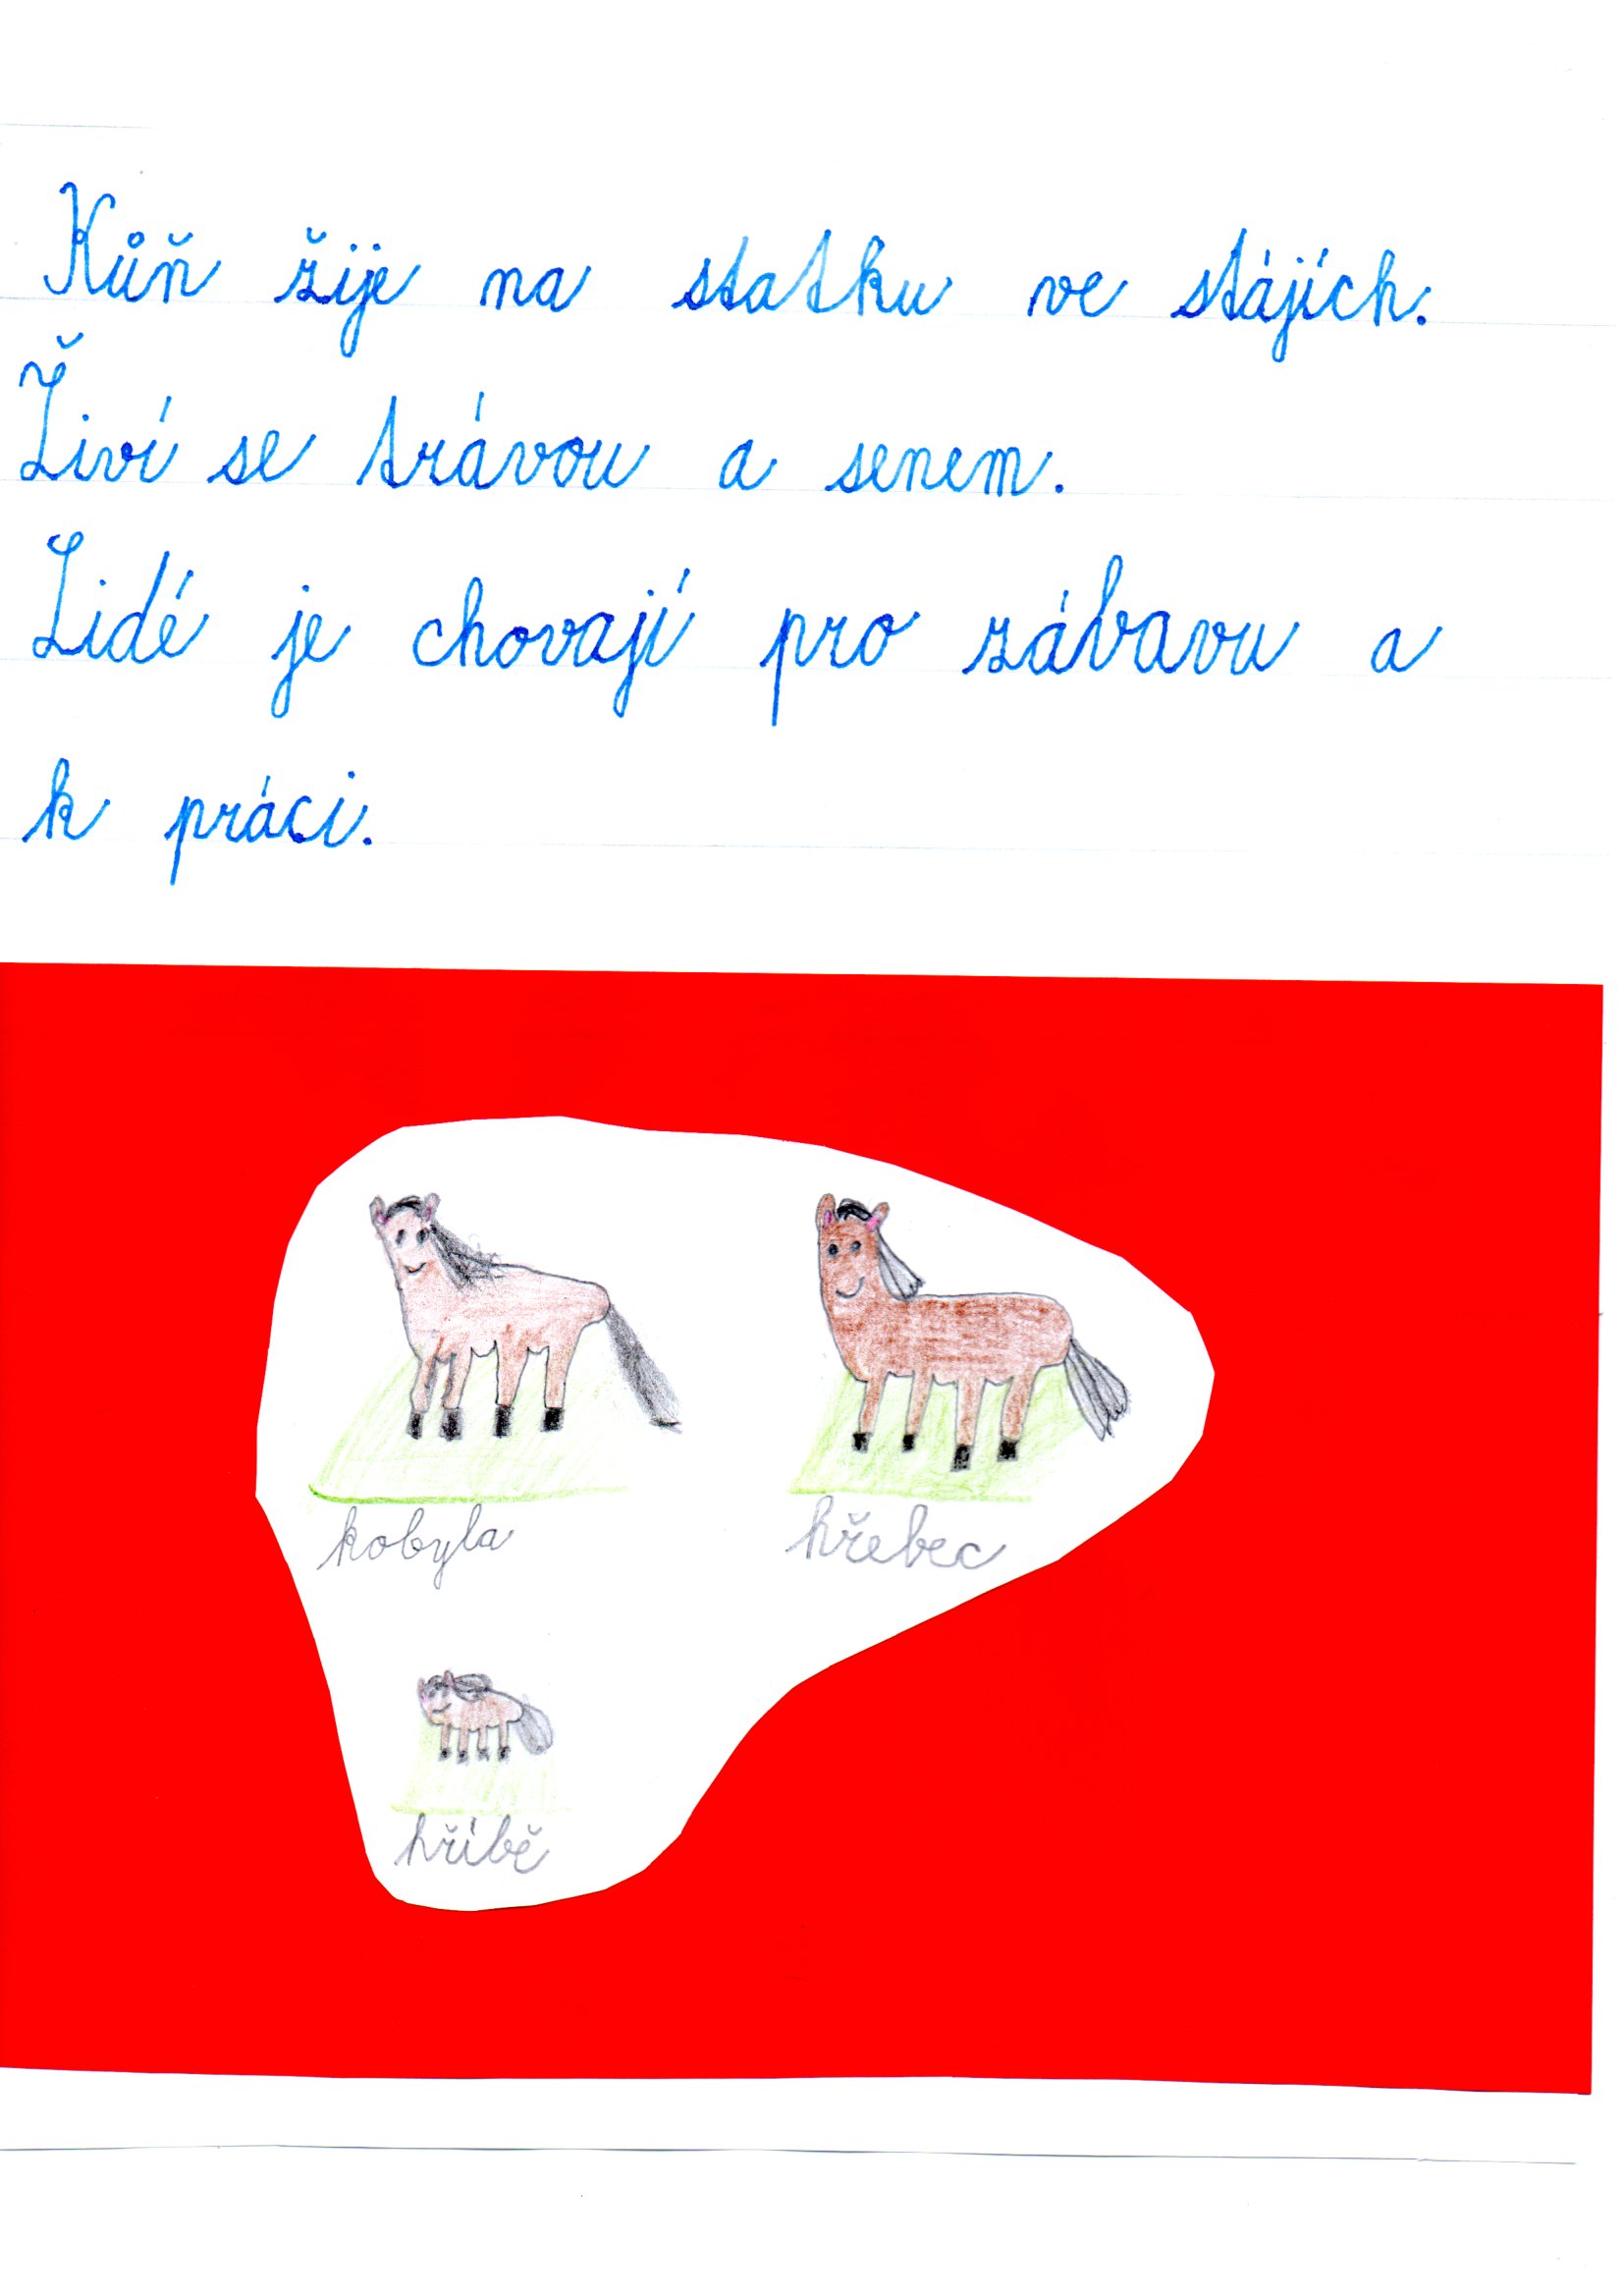 Kůň žije na statku ve stájích.
Živí se trávou a senem.
Lidé je chovají pro zábavu a
k práci.
kobyla
hřebec
hříbě